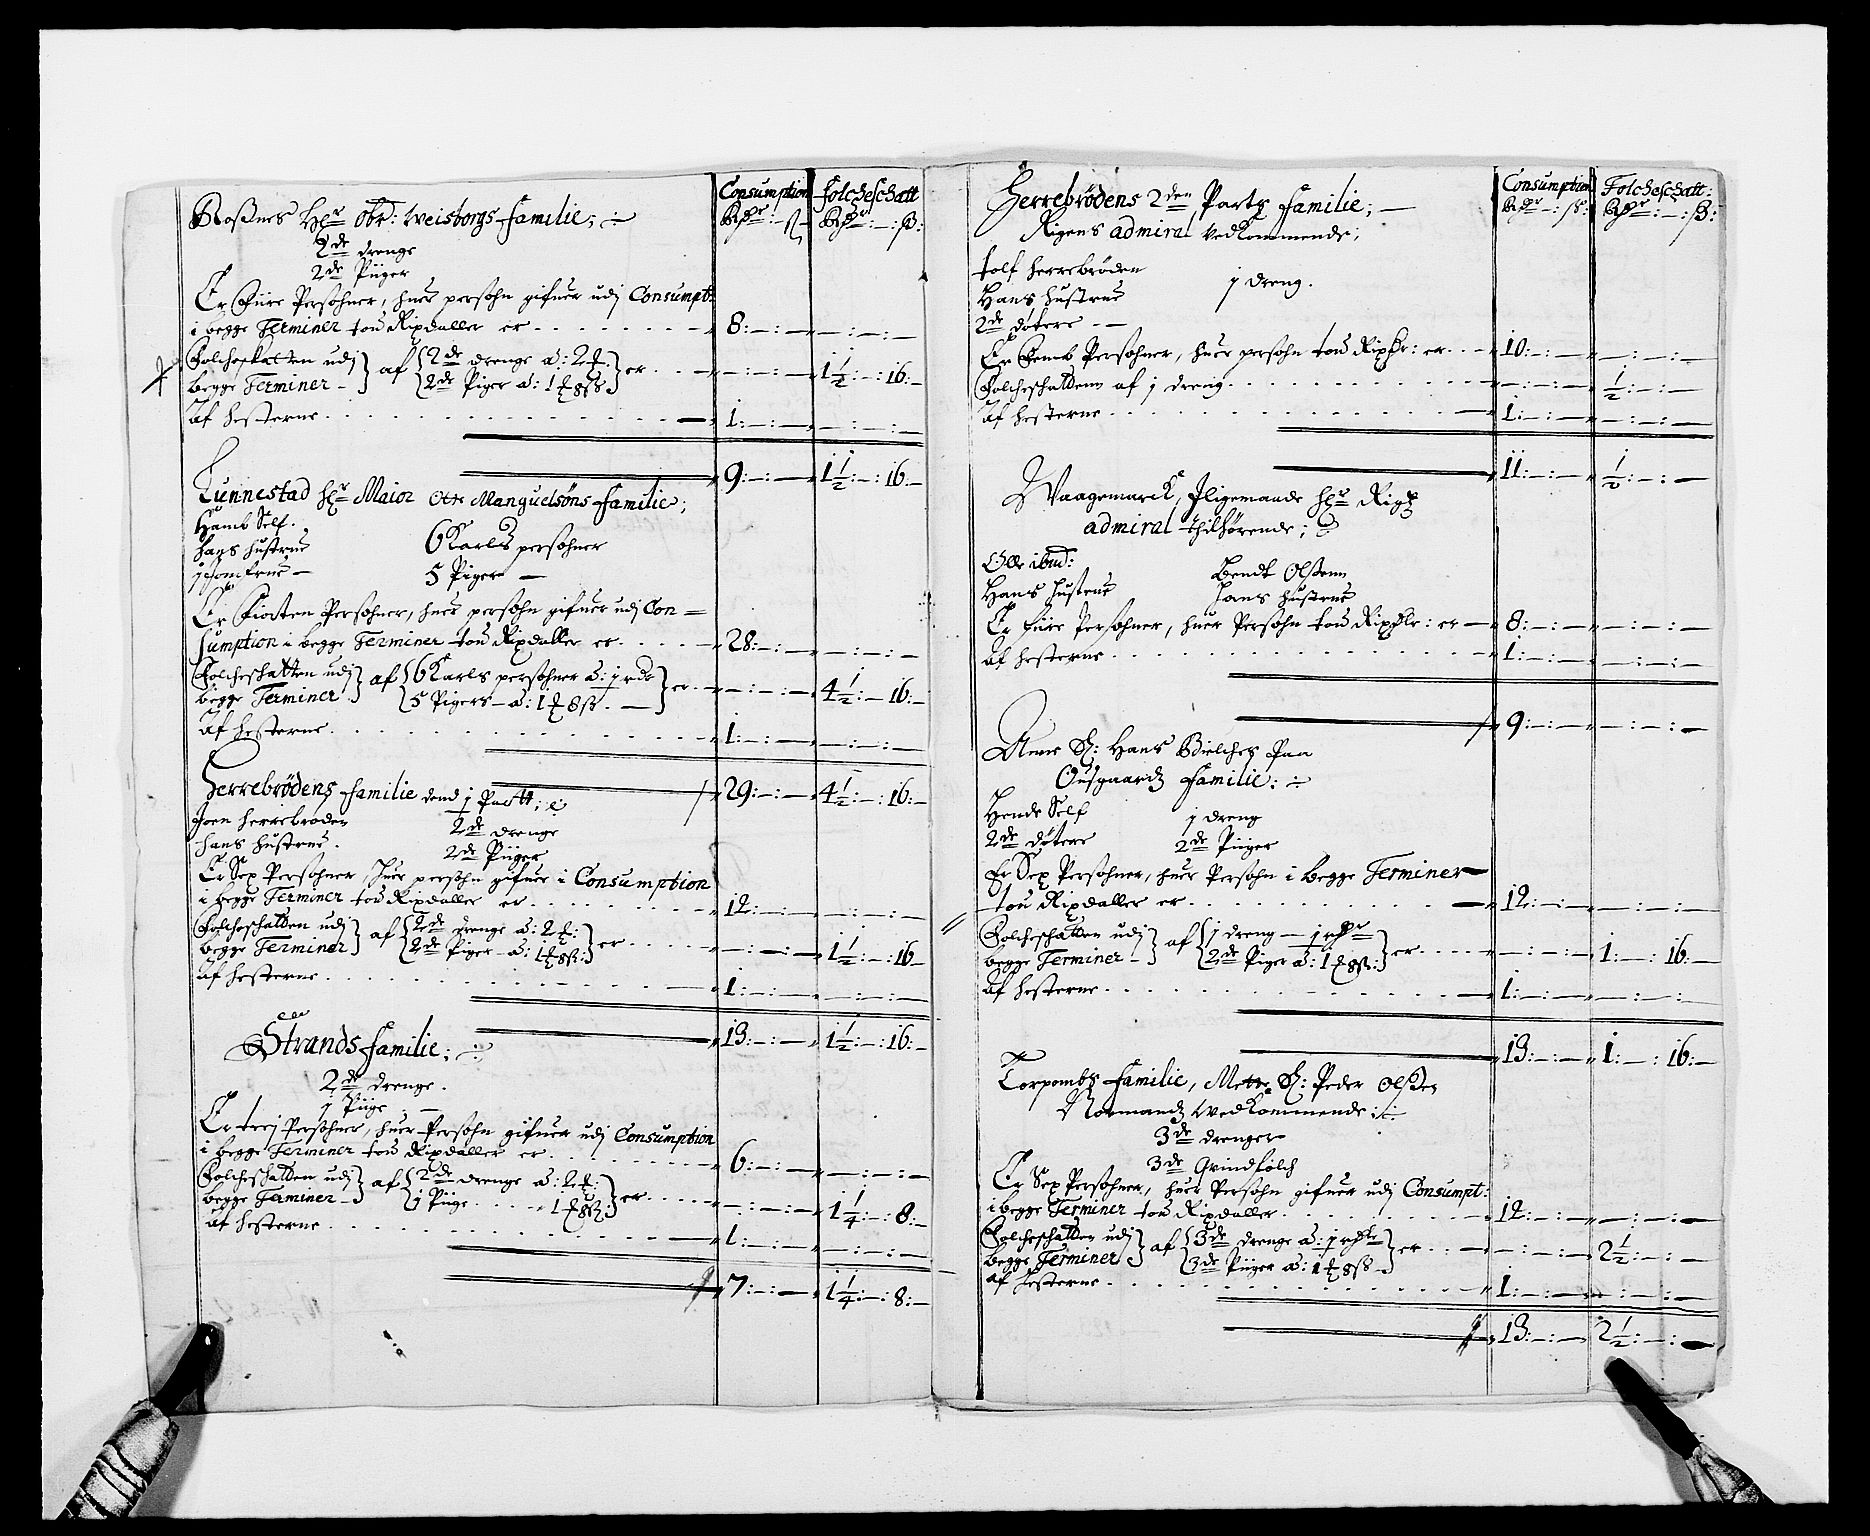 Consumption Folcheschatt
Rdr:—:ß— Rdr:—:ß:
Roßnes Hr Obr: Weisborgs Familie;
2de drenge
2de Piiger
Er Fiire Persohner, huer persohn gifuer udj Consumpt:
i begge Terminer tou Rixdaller er 8:—:— —:—:—
Folcheskatten udj begge Terminer af 2de drenge á: 2 2de Piger á: 1 8ß er —:—:— 1½:—:16:—
Af hesterne 1:—:— —:—:—
9:—:— 1½:—:16:—
Tunnestad Hr Maior Otte Manguelsöns Familie;
Hamb Self.
hans hustrue 6 Karls persohner
j Jomfrue — 5 Piger —
Er Fiorten Persohner, huer persohn gifuer udj Con=
sumption i begge Terminer tou Rixdaller er 28:—:— —:—:—
Folcheschatten udj begge Terminer af 6 Karls persohner á: j rdr 5 Pigers á: 1 8ß er —:—:— 4½:—:16:—
Af hesterne 1:—:— —:—:—
29:—:— 4½:—:16:—
Herrebrödens Familie dend j Partt;
Joen herrebroden 2de drenge
hans hustrue. 2de Piiger
Er Sex Persohner, huer persohn gifuer i Consumption
i begge Terminer tou Rixdaller er 12:—:— —:—:—
Folcheschatten udj begge Terminer af 2de drenge á: 2 2de Piger á: 1 8ß er —:—:— 1½:—:16
Af hesterne 1:—:— —:—:—
13:—:— 1½:—:16:—
Strands Familie;
2de drenge.
j Piige —
Er trej Persohner, huer Persohn gifuer udj Consumption
i begge Terminer tou Rixdaller er 6:—:— —:—:—
Folcheschatten udj begge Terminer af 2de drenge á: 2 j Piige 1 8ß er —:—:— 1¼:—:8:—
Af hesterne 1:—:— —:—:—
7:—:— 1¼:—:8:—
Consumption Folcheschatt:
Rdr—:ß:— Rdr:—:ß:
Herrebrödens 2den Parts Familie;—
Rigens admiral vedkommende;
tolf herrebröden j dreng.
Hans hustrue
2de döttre —
Er Femb Persohner, huer persohn tou Rixdr: er 10:—:— —:—:—
Folcheschattenn af j dreng —:—:— ½:—:—
Af hesterne 1:—:— —:—:—
11:—:— ½:—:—
Waagemarck, Iligemaade Hr Rigs
admiral thilhörende;
Olle ibid: Bendt Olsenn
Hans hustrue hans hustrue
Er fiire Persohner, huer Persohn tou Rixdlr: er 8:—:— —:—:—
Af hesterne 1:—:— —:—:—
9:—:— —:—:—
Anne Sl: Hans Bielches Paa
Ousgaardz Familie:
Hende Self j dreng
2de döttre 2de Piiger
Er Sex Persohner, huer Persohn i begge Terminer
tou Rixdaller er 12:—:— —:—:—
Folcheschatten udj begge Terminer af j dreng — j rdr 2de Piger á: 1 8ß er —:—:— 1:—:16:—
Af hesterne 1:—:— —:—:—
13:—:— 1:—:16:—
Torpombs Familie, Mette Sl: Peder Olsßen
Normandz vedkommende:
3de drenger
3de Qvindfolch
Er Sex Persohner, huer Persohn gifuer udj Consumpt:
i begge Terminer tou Rixdaller 12:—:— —:—:—
Folcheschatten udj begge Terminer af 3de drenge á: j rdr 3de Piiger á: 1 8ß er —:—:— 2½:—:—
af hesterne 1:—:— —:—:—
13:—:— 2½:—:—